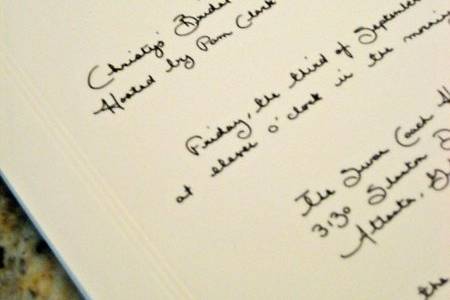 Christy's Bridal
Hosted by Pam Clark
Friday, the third of September
at eleven o'clock in the morning
The Swan Coach H
3130 Slaton D
Atlanta, G
the